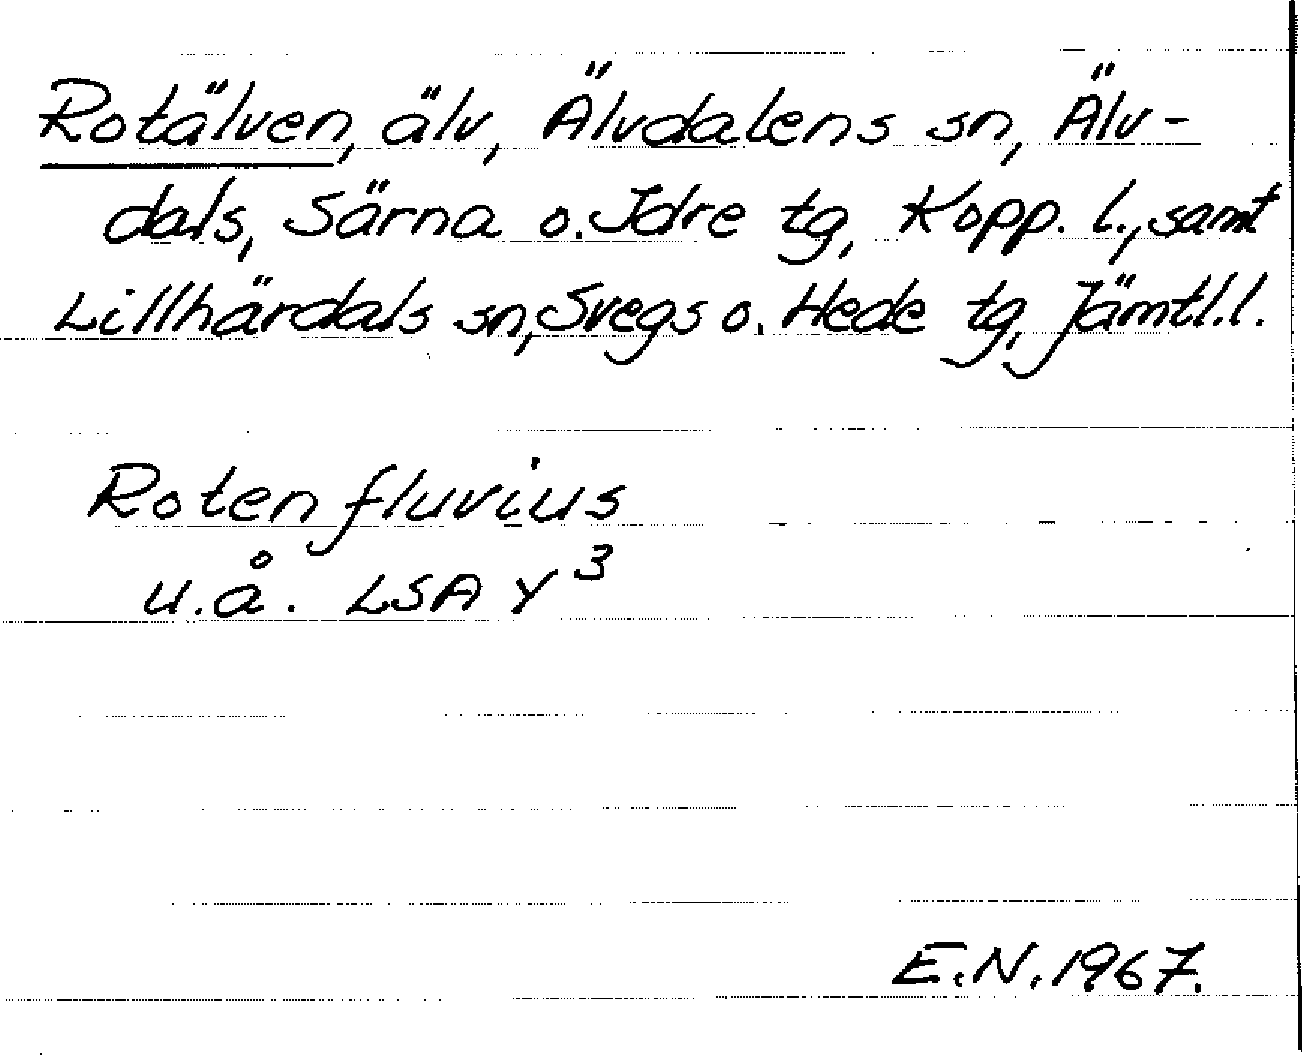 Rotälven, älv, Älvdalens sn, Älv-
dals, Särna o. Idre tg, Kopp. l., samt
Lillhärdals sn, Svegs o. Hede tg, Jämtl.l.
Roten fluvius
u.å. LSA Y³
E.N. 1967.